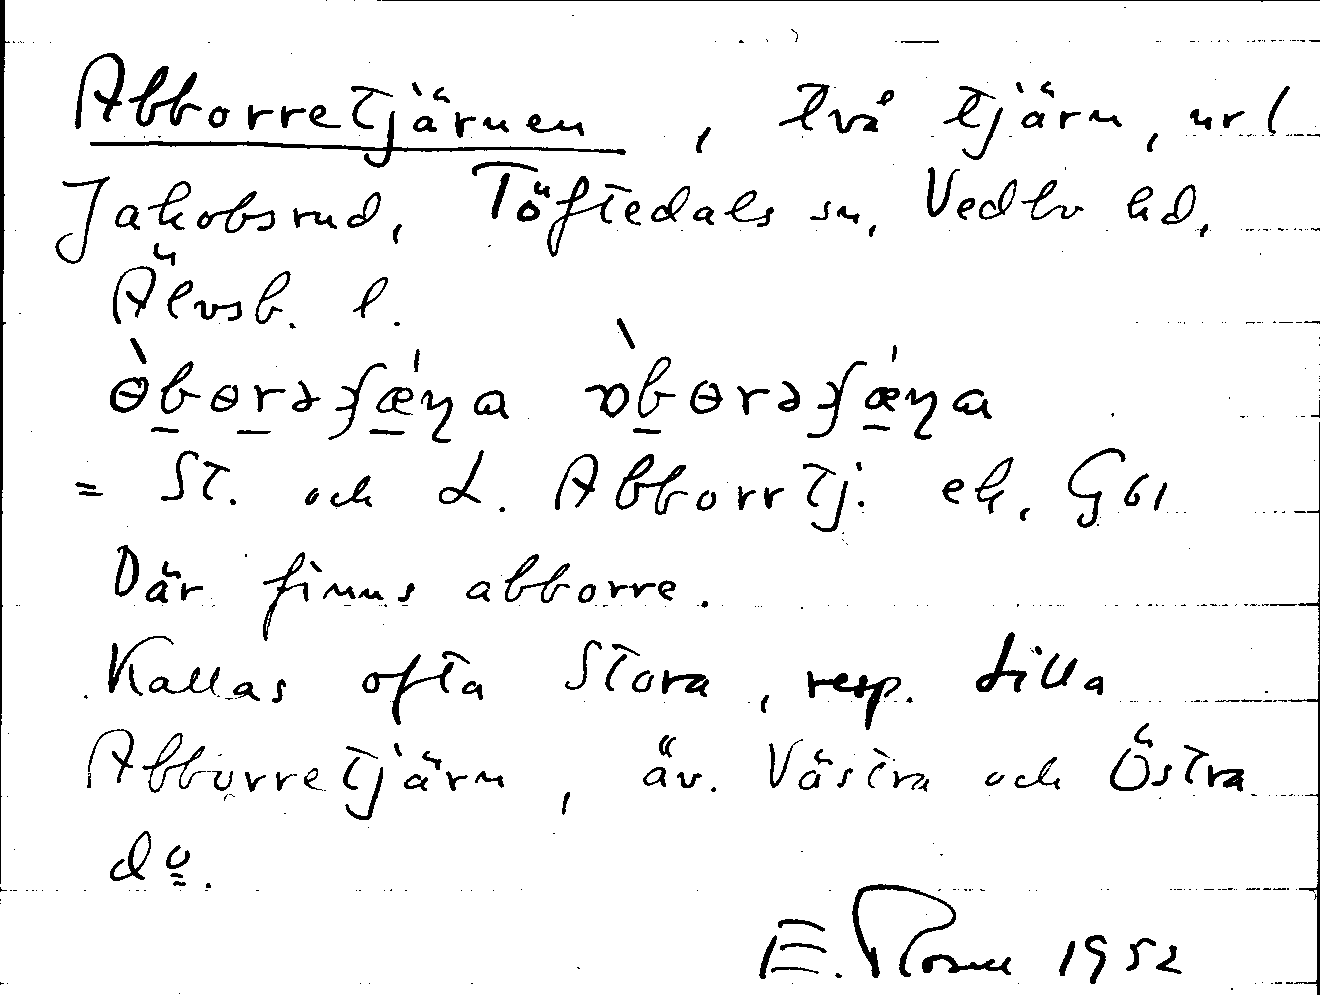 Abborretjärnen, två tjärn, ur l
Jakobsrud, Töftedals sn, Vedbo hd,
Älvsb. l.
= St. och L. Abborrtj. ek. G 61
Där finns abborre.
Kallas ofta Stora, resp. Lilla
Abborretjärn, äv. Västra och Östra
do.
E. 1952